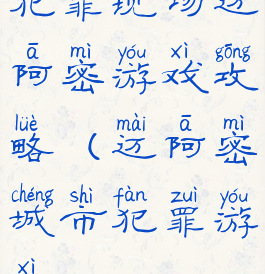 犯罪现场迈
ā mì yóu xì gōng
阿密游戏攻
lüè mài ā mì
略（迈阿密
chéng shì fàn zuì yóu
城市犯罪游
xì